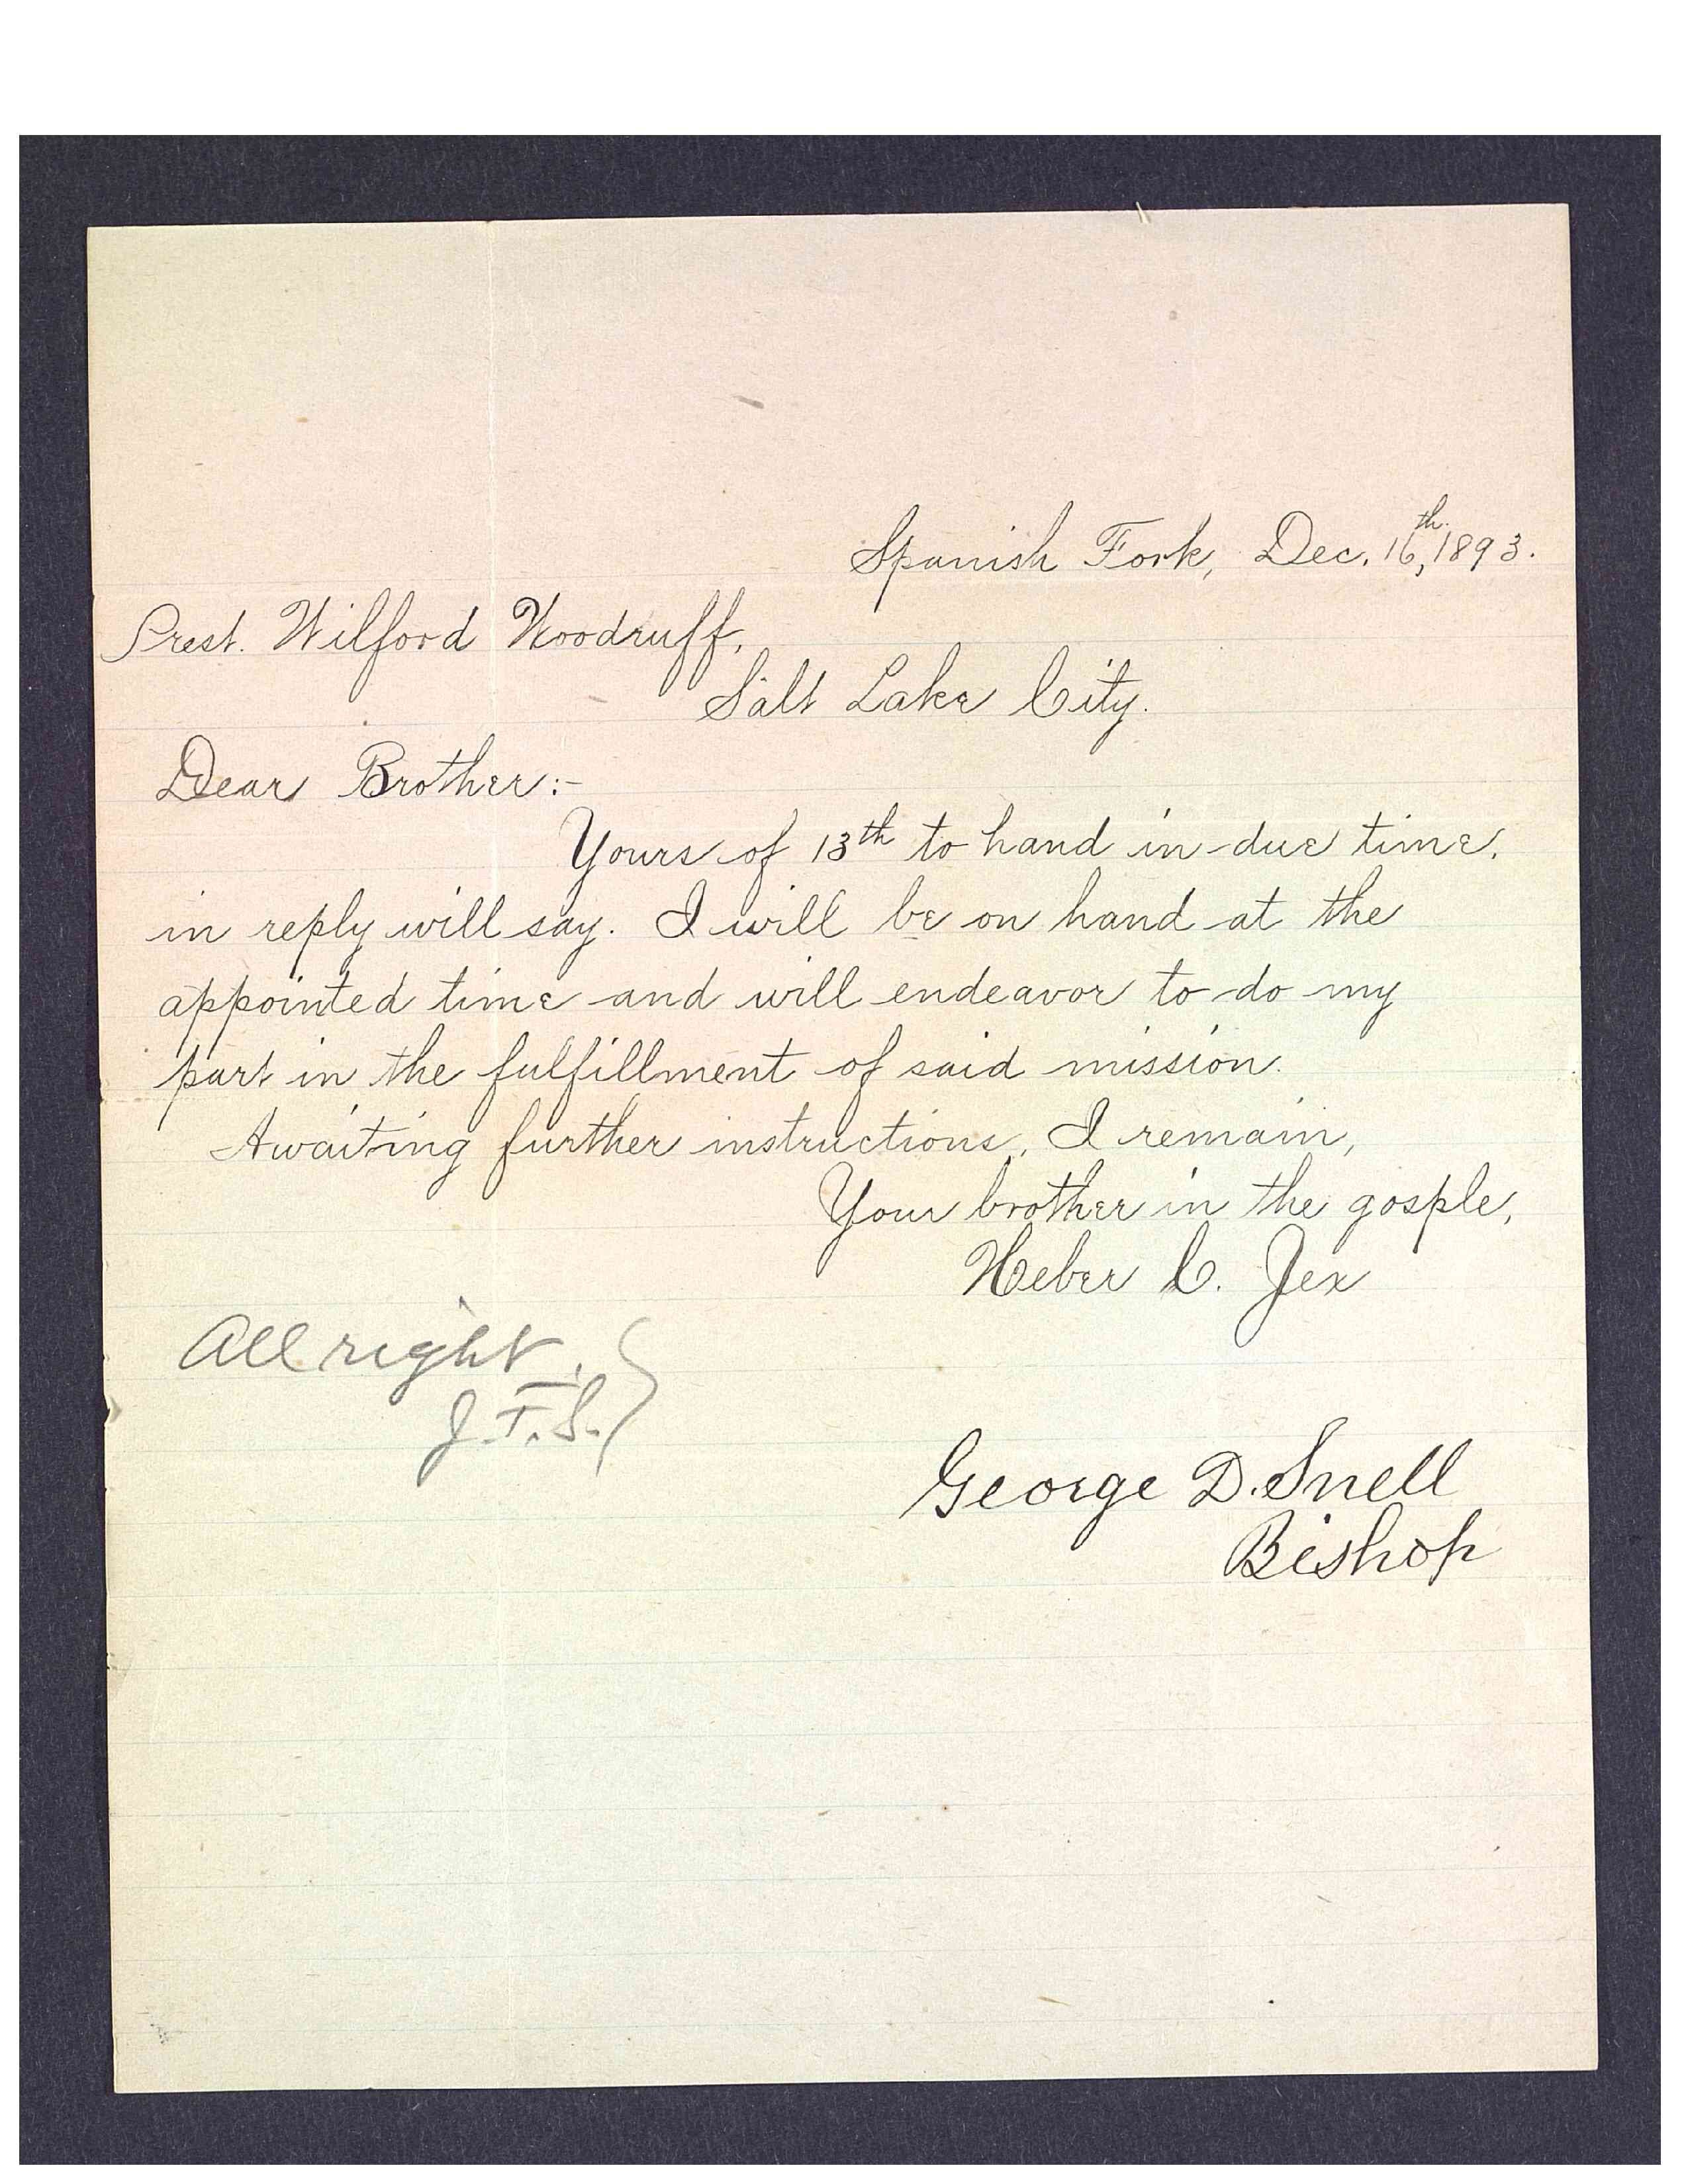 Spanish Fork, Dec. 16th, 1893.
Prest. Wilford Woodruff,
Salt Lake City.
Dear Brother:-
Yours of 13th to hand in due time,
in reply will say. I will be on hand at the
appointed time and will endeavor to do my
part in the fulfillment of said mission.
Awaiting further instructions, I remain,
Your brother in the gosple,
Heber C. Jex
All right,
J.F.S.
George D. Snell
Bishop